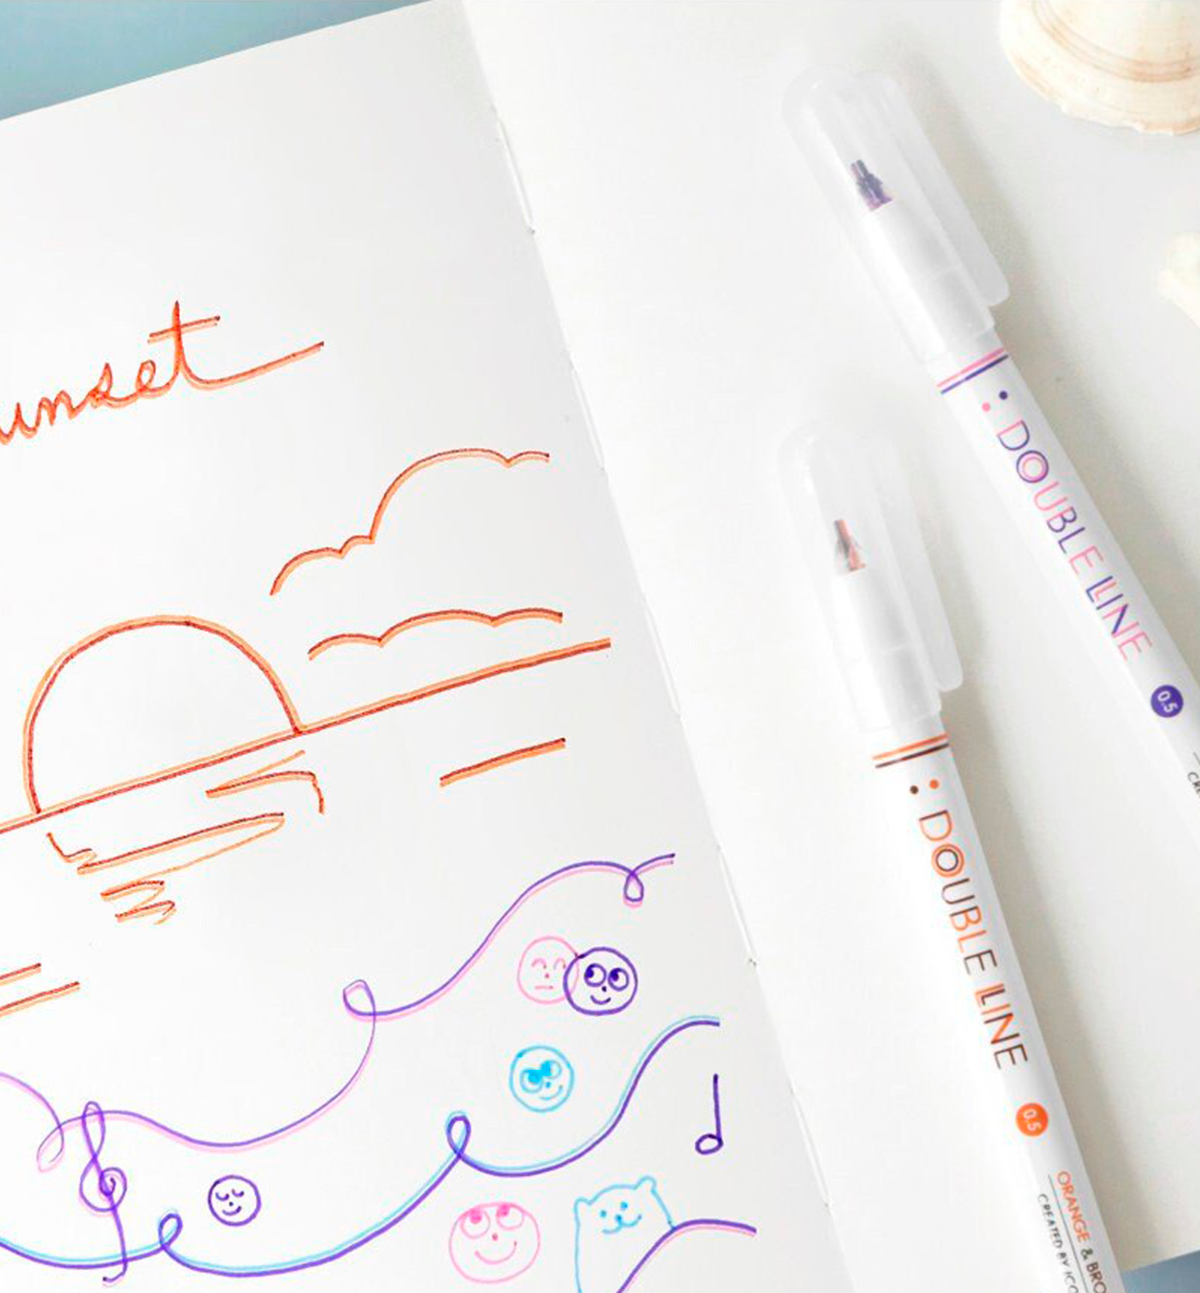 unset
DOUBLE LINE
0.5
DOUBLE LINE
0.5
ORANGE & BRO
CREATED BY ICO